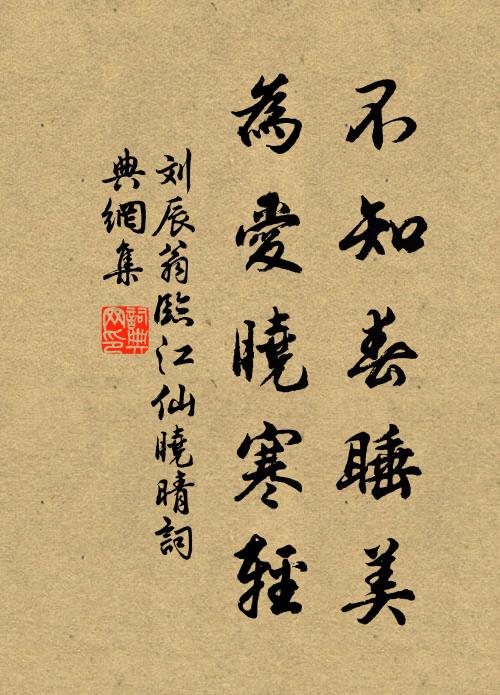 不知春睡美
為愛曉寒輕
刘辰翁臨江仙曉晴詞
典網集
詞典網印